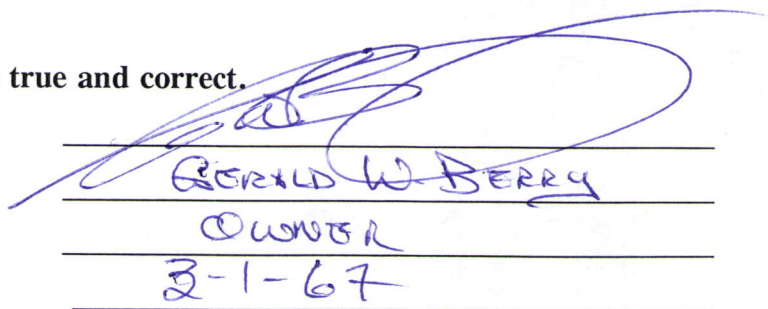 true and correct.
GERALD W. BERRY
OWNER
3-1-67